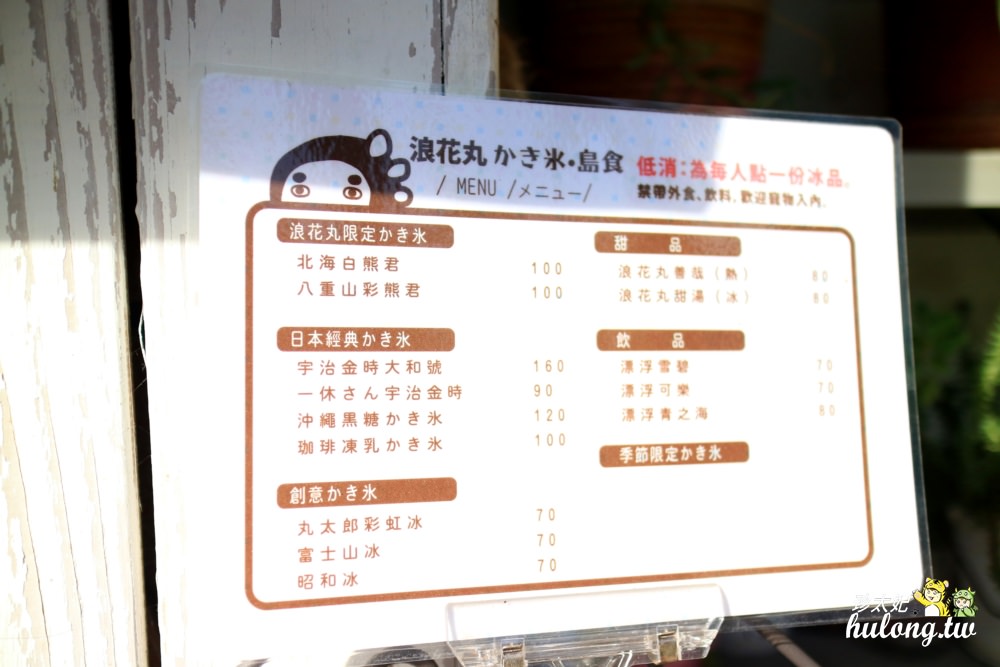 浪花丸かき氷•島食
/ MENU /メニュー/
低消:為每人點一份冰品。
禁帶外食、飲料,歡迎寵物入內.
浪花丸限定かき氷
北海白熊君 100
八重山彩熊君 100
日本經典かき氷
宇治金時大和號 160
一休さん宇治金時 90
沖繩黒糖かき氷 120
珈琲凍乳かき氷 100
創意かき氷
丸太郎彩虹冰 70
富士山冰 70
昭和冰 70
甜 品
浪花丸善哉(熱) 80
浪花丸甜湯(冰) 80
飲 品
漂浮雪碧 70
漂浮可樂 70
漂浮青之海 80
季節限定かき氷
hulong.tw